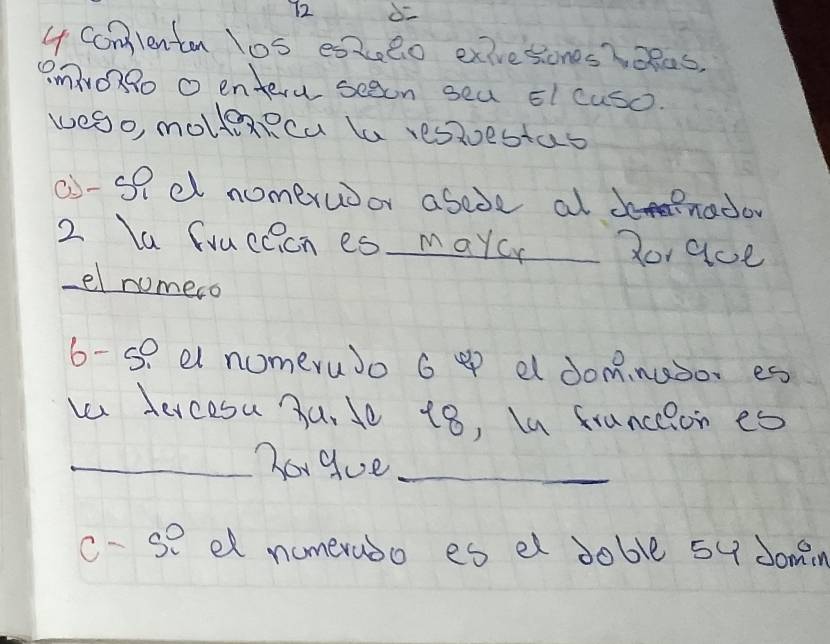 12
4 Complenten los espaeio expresiones propias,
impropio o entera segun seu El caso.
luego, moltiplica la respuestas
a)- si el nomerudor asede al deminador
2 la fruccion es mayor porque
el numero
b- si el nomerudo 6 el dominudor es
la tercesa parte 18, la franccion es
porque
c- si el numerado es el doble 54 domin